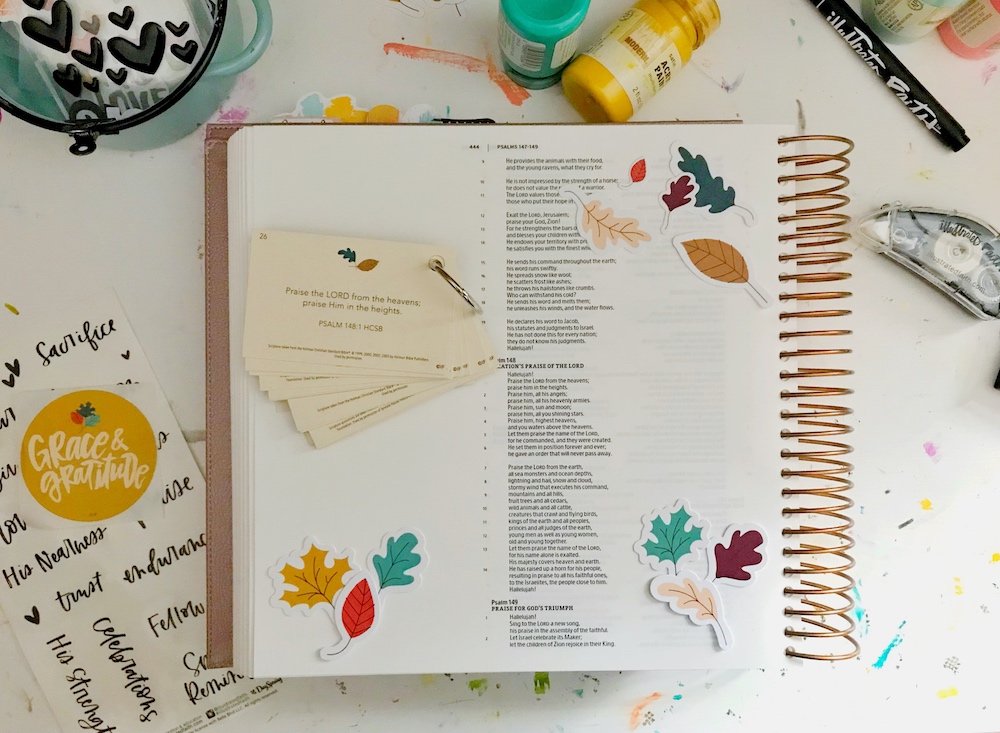 LOVE
MODERN
ACRYLIC
PAINT
illustrated Faith
444 | PSALMS 147-149
9 He provides the animals with their food,
and the young ravens, what they cry for.
10 He is not impressed by the strength of a horse;
he does not value the of a warrior.
11 The LORD values those
those who put their hope in
12 Exalt the LORD, Jerusalem;
praise your God, Zion!
13 For he strengthens the bars o
and blesses your children with
14 He endows your territory with pr
he satisfies you with the finest wh
15 He sends his command throughout the earth;
his word runs swiftly.
16 He spreads snow like wool;
he scatters frost like ashes;
17 he throws his hailstones like crumbs.
Who can withstand his cold?
18 He sends his word and melts them;
he unleashes his winds, and the water flows.
He declares his word to Jacob,
his statutes and judgments to Israel.
He has not done this for every nation;
they do not know his judgments.
Hallelujah!
lm 148
CATION'S PRAISE OF THE LORD
Hallelujah!
Praise the LORD from the heavens;
praise him in the heights.
Praise him, all his angels;
praise him, all his heavenly armies.
3 Praise him, sun and moon;
praise him, all you shining stars.
4 Praise him, highest heavens,
and you waters above the heavens.
5 Let them praise the name of the LORD,
for he commanded, and they were created.
6 He set them in position forever and ever;
he gave an order that will never pass away.
7 Praise the LORD from the earth,
all sea monsters and ocean depths,
8 lightning and hail, snow and cloud,
stormy wind that executes his command,
9 mountains and all hills,
fruit trees and all cedars,
10 wild animals and all cattle,
creatures that crawl and flying birds,
11 kings of the earth and all peoples,
princes and all judges of the earth,
12 young men as well as young women,
old and young together.
13 Let them praise the name of the LORD,
for his name alone is exalted.
His majesty covers heaven and earth.
14 He has raised up a horn for his people,
resulting in praise to all his faithful ones,
to the Israelites, the people close to him.
Hallelujah!
Psalm 149
PRAISE FOR GOD'S TRIUMPH
1 Hallelujah!
Sing to the LORD a new song,
his praise in the assembly of the faithful.
2 Let Israel celebrate its Maker;
let the children of Zion rejoice in their King.
26
Praise the LORD from the heavens;
praise Him in the heights.
PSALM 148:1 HCSB
Sacrifice
GRACE &
gratitude
His Nearness
trust
endurance
Fellow
celebrations
His strengt
DaySpring